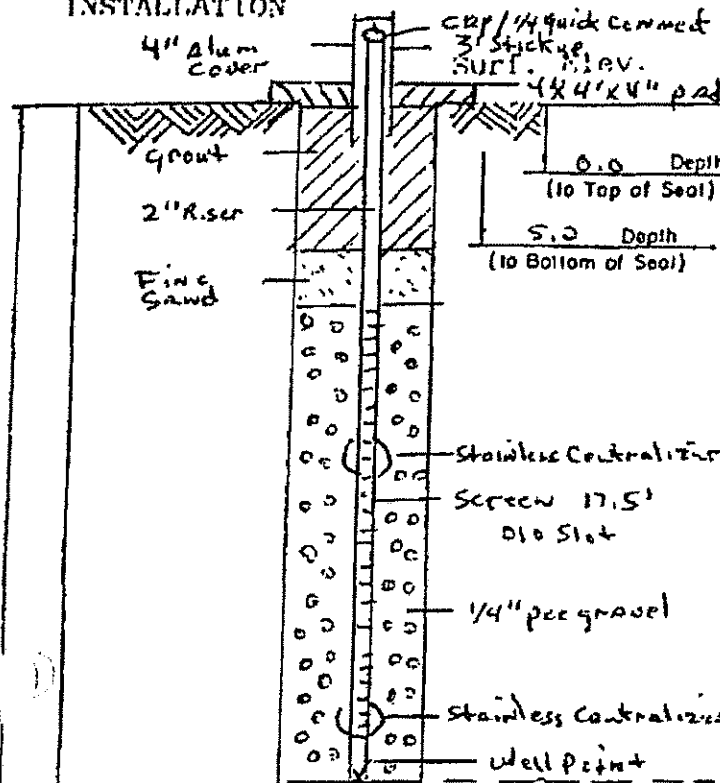 INSTALLATION
4" Alum
Cover
Cap / 1/4 quick connect
3' Stickup
Surf. Elev.
4x4'x4" pad
grout
0.0 Depth
(to Top of Seal)
2" Riser
5.0 Depth
(to Bottom of Seal)
Fine
Sand
Stainless Centralizer
Screen 17.5'
010 Slot
1/4" pee gravel
Stainless Centralize
Well Point